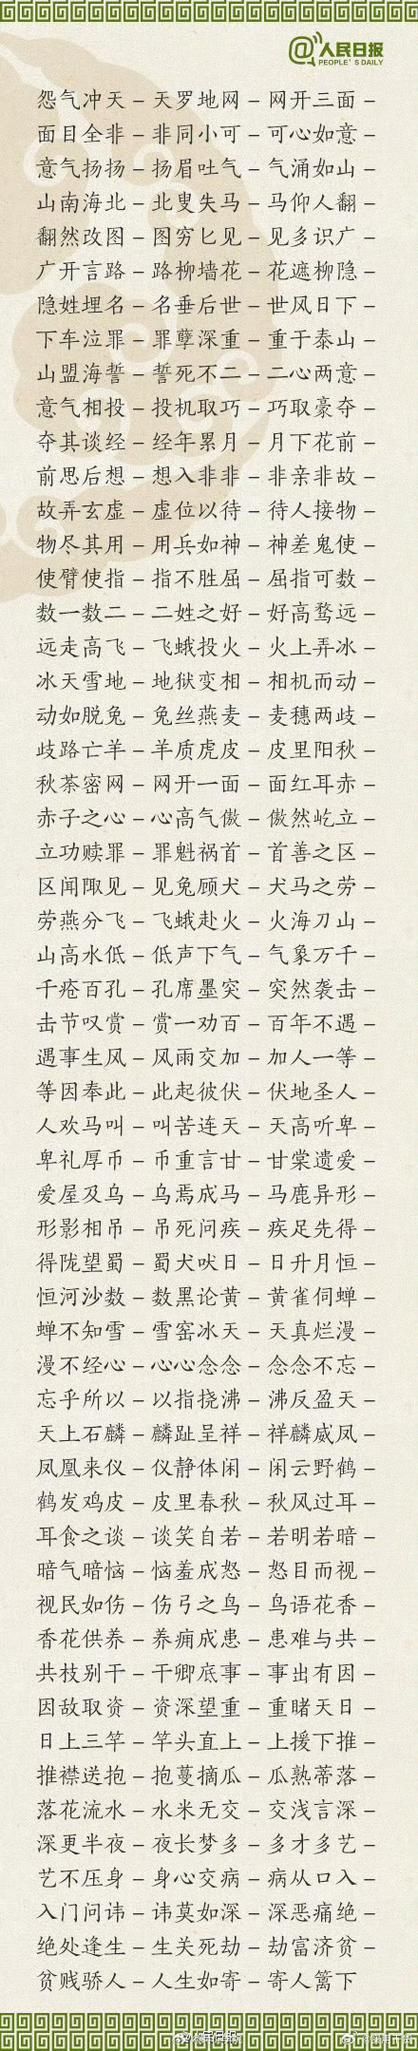 @人民日报
PEOPLE'S DAILY
怨气冲天 – 天罗地网 – 网开三面 –
面目全非 – 非同小可 – 可心如意 –
意气扬扬 – 扬眉吐气 – 气涌如山 –
山南海北 – 北叟失马 – 马仰人翻 –
翻然改图 – 图穷匕见 – 见多识广 –
广开言路 – 路柳墙花 – 花遮柳隐 –
隐姓埋名 – 名垂后世 – 世风日下 –
下车泣罪 – 罪孽深重 – 重于泰山 –
山盟海誓 – 誓死不二 – 二心两意 –
意气相投 – 投机取巧 – 巧取豪夺 –
夺其谈经 – 经年累月 – 月下花前 –
前思后想 – 想入非非 – 非亲非故 –
故弄玄虚 – 虚位以待 – 待人接物 –
物尽其用 – 用兵如神 – 神差鬼使 –
使臂使指 – 指不胜屈 – 屈指可数 –
数一数二 – 二姓之好 – 好高骛远 –
远走高飞 – 飞蛾投火 – 火上弄冰 –
冰天雪地 – 地狱变相 – 相机而动 –
动如脱兔 – 兔丝燕麦 – 麦穗两歧 –
歧路亡羊 – 羊质虎皮 – 皮里阳秋 –
秋荼密网 – 网开一面 – 面红耳赤 –
赤子之心 – 心高气傲 – 傲然屹立 –
立功赎罪 – 罪魁祸首 – 首善之区 –
区闻陬见 – 见兔顾犬 – 犬马之劳 –
劳燕分飞 – 飞蛾赴火 – 火海刀山 –
山高水低 – 低声下气 – 气象万千 –
千疮百孔 – 孔席墨突 – 突然袭击 –
击节叹赏 – 赏一劝百 – 百年不遇 –
遇事生风 – 风雨交加 – 加人一等 –
等因奉此 – 此起彼伏 – 伏地圣人 –
人欢马叫 – 叫苦连天 – 天高听卑 –
卑礼厚币 – 币重言甘 – 甘棠遗爱 –
爱屋及乌 – 乌焉成马 – 马鹿异形 –
形影相吊 – 吊死问疾 – 疾足先得 –
得陇望蜀 – 蜀犬吠日 – 日升月恒 –
恒河沙数 – 数黑论黄 – 黄雀伺蝉 –
蝉不知雪 – 雪窑冰天 – 天真烂漫 –
漫不经心 – 心心念念 – 念念不忘 –
忘乎所以 – 以指挠沸 – 沸反盈天 –
天上石麟 – 麟趾呈祥 – 祥麟威凤 –
凤凰来仪 – 仪静体闲 – 闲云野鹤 –
鹤发鸡皮 – 皮里春秋 – 秋风过耳 –
耳食之谈 – 谈笑自若 – 若明若暗 –
暗气暗恼 – 恼羞成怒 – 怒目而视 –
视民如伤 – 伤弓之鸟 – 鸟语花香 –
香花供养 – 养痈成患 – 患难与共 –
共枝别干 – 干卿底事 – 事出有因 –
因敌取资 – 资深望重 – 重睹天日 –
日上三竿 – 竿头直上 – 上援下推 –
推襟送抱 – 抱蔓摘瓜 – 瓜熟蒂落 –
落花流水 – 水米无交 – 交浅言深 –
深更半夜 – 夜长梦多 – 多才多艺 –
艺不压身 – 身心交病 – 病从口入 –
入门问讳 – 讳莫如深 – 深恶痛绝 –
绝处逢生 – 生关死劫 – 劫富济贫 –
贫贱骄人 – 人生如寄 – 寄人篱下